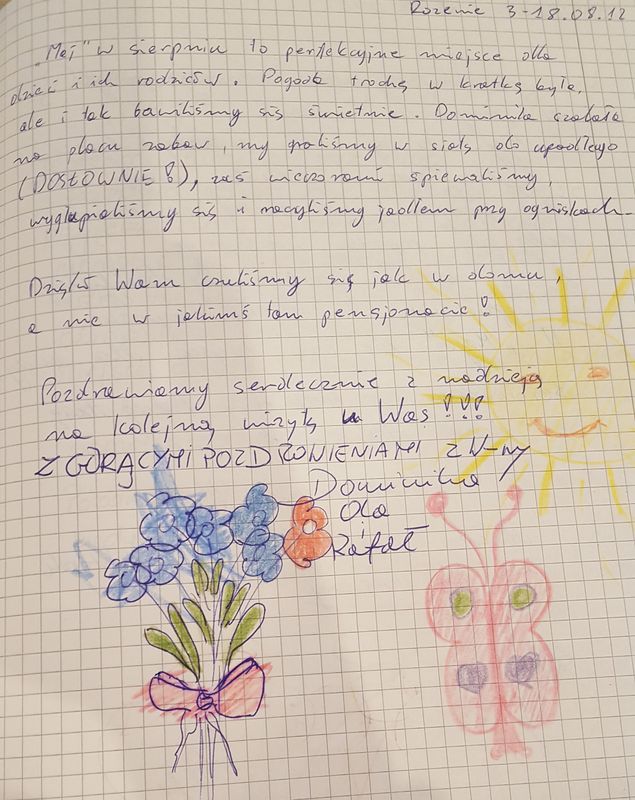 Rozenie 3-18.08.12
„Mej" w sierpniu to perfekcyjne miejsce dla
dzieci i ich rodziców. Pogoda trochę w kratkę była,
ale i tak bawiliśmy się świetnie. Dominika szalała
na placu zabaw, my graliśmy w siatę do upadłego
(DOSŁOWNIE!), zaś wieczorami śpiewaliśmy,
wygłupialiśmy się i raczyliśmy jadłem przy ogniskach.
Dzięki Wam czuliśmy się jak w domu,
a nie w jakimś tam pensjonacie!
Pozdrawiamy serdecznie z nadzieją
na kolejną wizytę u Was!!!
Z GORĄCYMI POZDROWIENIAMI z W-wy
Dominika
Ola
Rafał